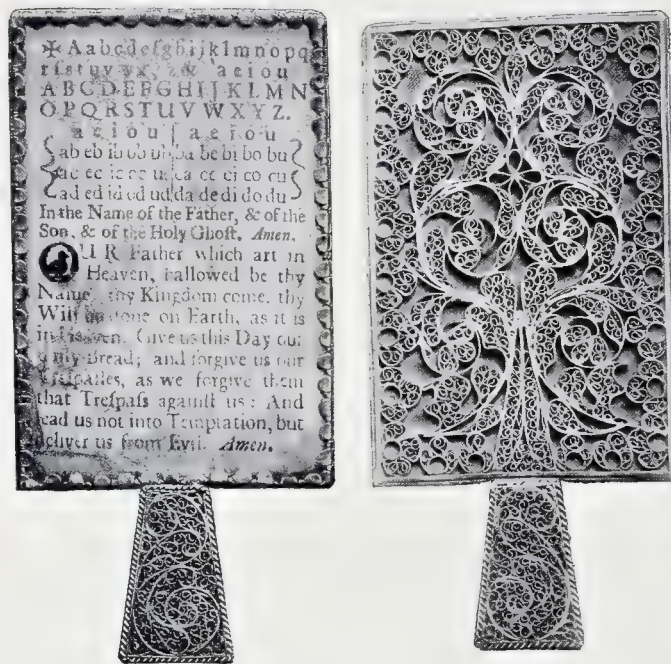 ✠ Aabcdefghijklmnopq
rſstuvwxyz& aeiou
ABCDEFGHIJKLMN
OPQRSTUVWXYZ.
a e i o u | a e i o u
ab eb ib ob ub | ba be bi bo bu
ac ec ic oc uc | ca ce ci co cu
ad ed id od ud | da de di do du
In the Name of the Father, & of the
Son, & of the Holy Ghoſt. Amen.
OUR Father which art in
Heaven, hallowed be thy
Name, thy Kingdom come, thy
Will be done on Earth, as it is
in Heaven. Give us this Day our
daily Bread; and forgive us our
Treſpaſſes, as we forgive them
that Treſpaſs againſt us: And
lead us not into Temptation, but
deliver us from Evil. Amen.